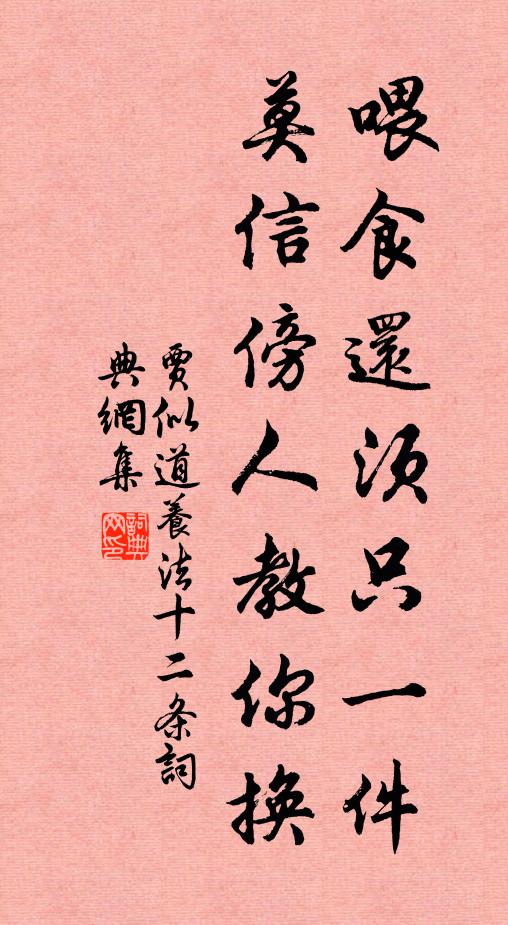 喂食還須只一件
莫信傍人教你換
賈似道養法十二条詞
典網集
詞典網印